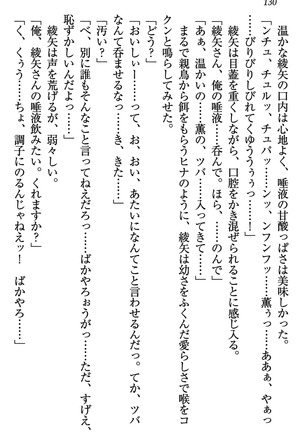 130
温かな綾矢の口内は心地よく、唾液の甘酸っぱさは美味しかった。
「ンチュ、チュルッ、チュバッ……ンッ、ンフンフッ……薫ぅっ……あああ、やぁっ
……びりびりしびれてくゆううぅぅっ……」
綾矢は目蓋を重くしながら、口腔をかき混ぜられることに感じ入る。
「綾矢さん、俺の唾液……呑んで。ほら、……のんで」
「あぁ、温かいの……薫の、ツバ……入ってきて……」
まるで親鳥から餌をもらうヒナのように、綾矢は幼さをふくんだ愛らしさで喉をコ
クンと鳴らしてみせた。
「どう？」
「おいしぃー……って、お、おい、あたいになんてこと言わせるんだっ。てか、ツバ
なんて呑ませるなっ……き、きた……」
「汚い？」
「べ、別に誰もそんなこと言ってねえだろっ……ばかやろぉうがっ……ただ、すげえ、
恥ずかしいんだよっ……」
綾矢は声を荒げるが、弱々しい。
「俺、綾矢さんの唾液飲みたい。くれますか？」
「く、くぅう……ちょ、調子にのるんじゃねえッ！　ばかやろ……」